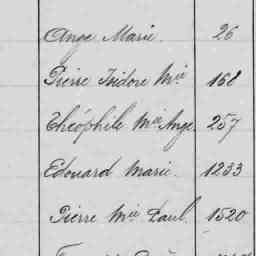 Ange Marie. 26
Pierre Isidore Mie 168
Théophile Mie Ange. 257
Edouard Marie. 1233
Pierre Mie Paul. 1520